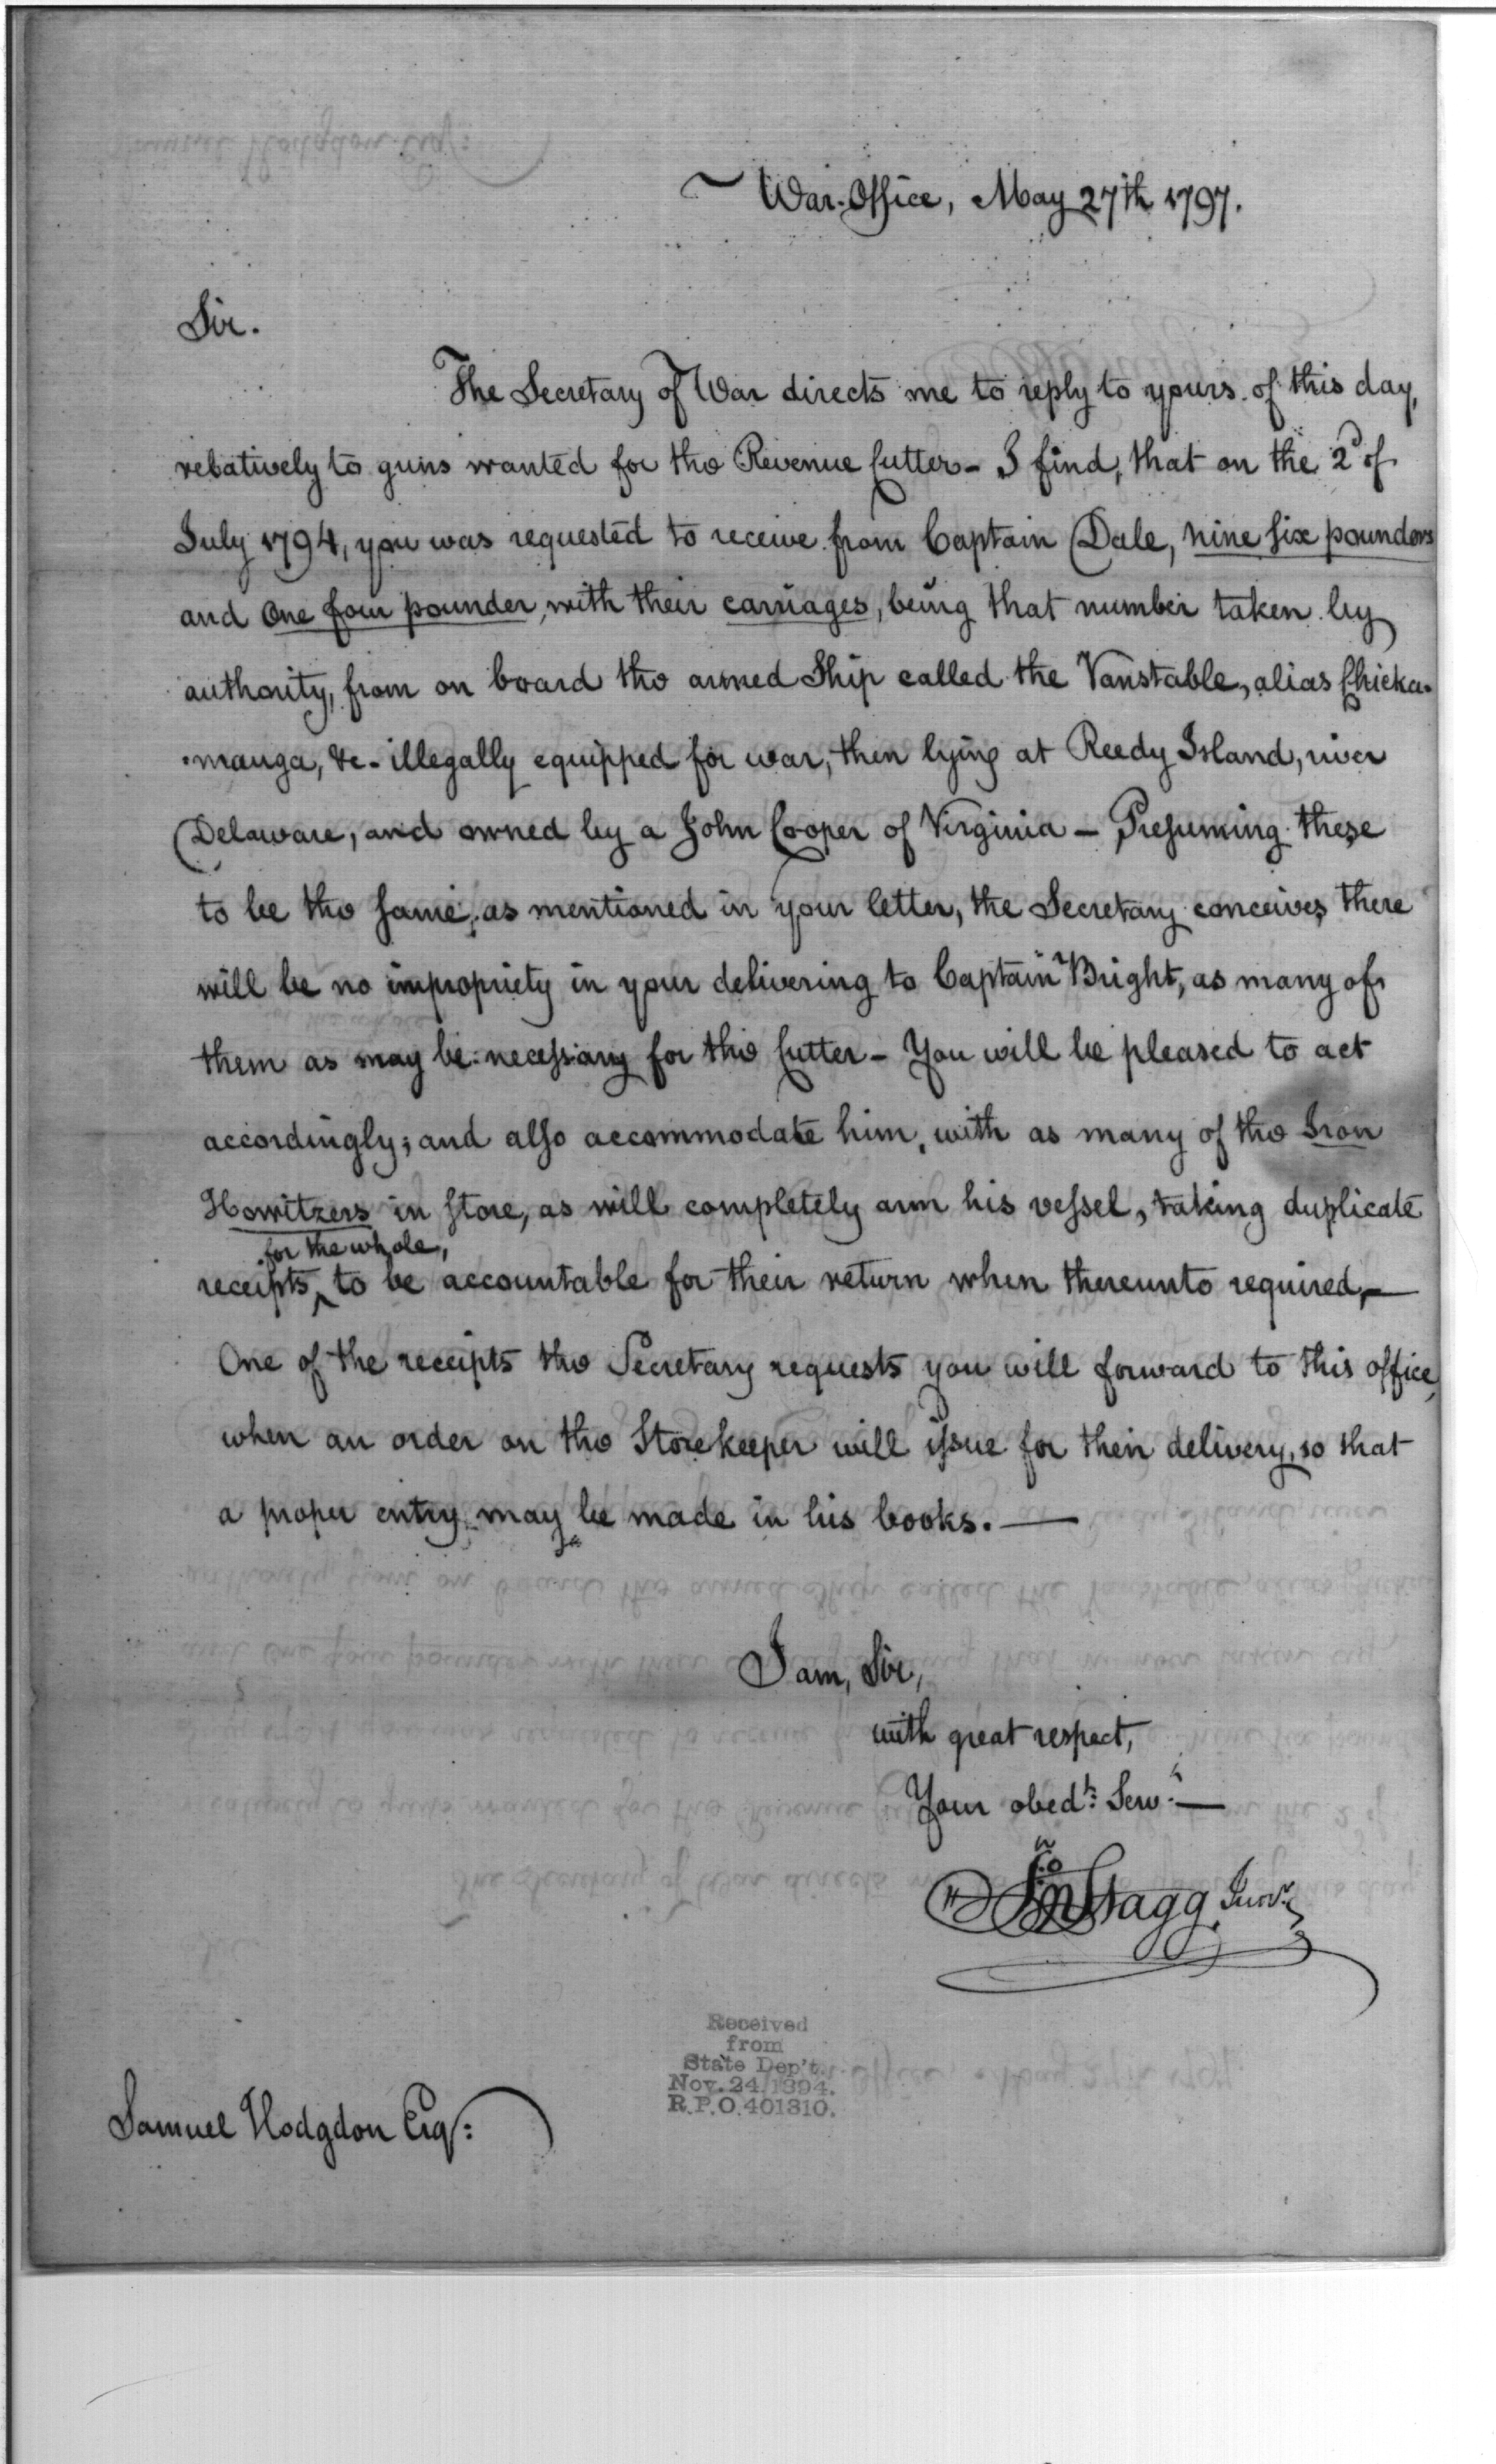 War Office, May 27th 1797.
Sir.
The Secretary of War directs me to reply to yours of this day,
relatively to guns wanted for the Revenue Cutter - I find, that on the 2d of
July 1794, you was requested to receive from Captain Dale, nine six pounders
and One four pounder, with their carriages, being that number taken by
authority, from on board the armed Ship called the Vanstable, alias Chicka-
-mauga, &c. illegally equipped for war, then lying at Reedy Island, river
Delaware, and owned by a John Cooper of Virginia - Presuming these
to be the same, as mentioned in your letter, the Secretary conceives there
will be no impropriety in your delivering to Captain Bright, as many of
them as may be necessary for the Cutter - You will be pleased to act
accordingly; and also accommodate him, with as many of the Iron
Howitzers in Store, as will completely arm his vessel, taking duplicate
for the whole,
receipts ^ to be accountable for their return when thereunto required, —
One of the receipts the Secretary requests you will forward to this office,
when an order on the Storekeeper will issue for their delivery, so that
a proper entry may be made in his books. —
I am, Sir,
with great respect,
Your obedt: Servt. —
Jno Stagg, Junr.
Received
from
State Dep't.
Nov. 24, 1894.
R.P.O. 401310.
Samuel Hodgdon Esq: